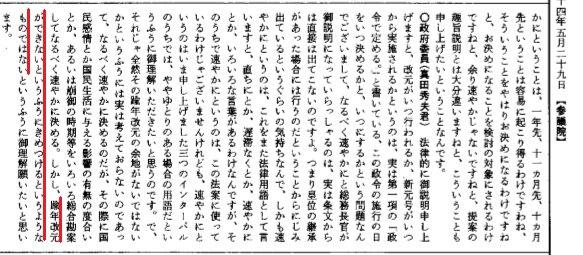 十四年五月二十九日　【参議院】
かにということは、一年先、十一カ月先、十カ月
先ということは容易に起こり得るわけですわね、
そういうことをやはりお決めになるわけですね
と、お決めになることを検討の対象にされるわけ
ですねと、余り速やかじゃないですねと、提案の
趣旨説明とは大分違いますねと、こういうことも
申し上げたいということなんです。
〇政府委員（真田秀夫君）　法律的に御説明申し上
げますと、改元がいつ行われるか、新元号がいつ
から実施されるかというのは、実は第一項の「政
令で定める。」と書いている、この政令の施行の日
をいつ決めるか、いつにするかという問題なん
でございまして、なるべく速やかにと総務長官が
御説明になっていらっしゃるのは、実は条文から
は直接は出てこないのですよ。つまり皇位の継承
があった場合には行うのだということからにじみ
出ているというぐらいの気持ちなんで、しかも速
やかにというのは、これをまた法律用語として言
いますと、直ちにとか、遅滞なくとか、速やかに
とか、いろいろな言葉があるわけなんですが、そ
のうちで速やかにというのは、この法案に使って
いるわけじゃございませんけれども、速やかにと
いうのはいま申し上げました三つのインターバル
のうちでは、ややゆとりのある場合の用語だとい
うふうに御理解いただきたいと思うのです。で、
それじゃ全然その踰年改元の余地がないではない
かというふうには実は考えておらないのであっ
て、なるべく速やかに決めるのだが、その際に国
民感情とか国民生活に与える影響の有無の度合い
とか、あるいは崩御の時期等をいろいろ総合勘案
してなるべく速やかに決める。しかし、踰年改元
ができないというふうにきめつけるというような
ものではないというふうに御理解願いたいと思い
ます。